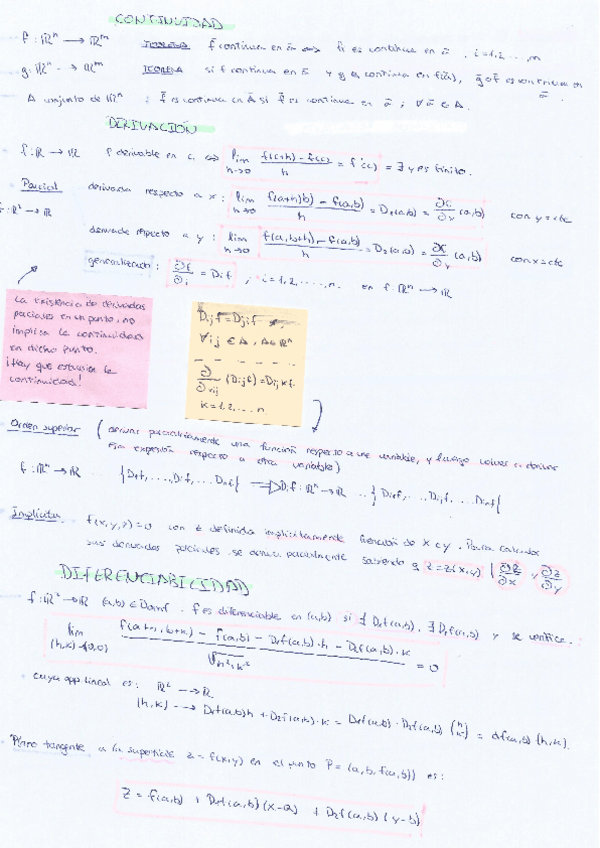 CONTINUIDAD
f: ℝⁿ → ℝᵐ TEOREMA f̄ continua en ā ⇔ fi es continua en ā, i=1,2,...,m
g: ℝⁿ → ℝᵐ TEOREMA si f continua en ā y g es continua en f(ā), ḡ∘f̄ es continua en ā.
A conjunto de ℝⁿ : f̄ es continua en A si f̄ es continua en ā ; ∀ ā ∈ A.
DERIVACIÓN
f: ℝ → ℝ f derivable en c ⇔ lim h→0 (f(c+h) - f(c))/h = f'(c) = ∃ y es finito.
Parcial derivada respecto a x : lim h→0 (f(a+h,b) - f(a,b))/h = D₁(a,b) = ∂f/∂x (a,b) con y=cte
f: ℝ² → ℝ
derivada respecto a y : lim h→0 (f(a,b+h) - f(a,b))/h = D₂(a,b) = ∂f/∂y (a,b) con x=cte
generalizado : ∂f/∂i = Dif , i=1,2,...,n. en f: ℝⁿ → ℝ
La existencia de derivadas
parciales en un punto, no
implica la continuidad
en dicho punto.
¡Hay que estudiar la
continuidad!
Dijf = Djif
∀ij ∈ A, A⊂ℝⁿ
(Dijf) = Dijkf.
k=1,2,...n.
Orden superior (derivar parcialmente una función respecto a una variable, y luego volver a derivar
esa expresión respecto a otra variable)
f: ℝⁿ → ℝ {D₁f,...,Dif,...Dnf} ⇒ Dif: ℝⁿ → ℝ
Implícitas f(x,y,z)=0 con z definida implícitamente función de x e y. Para calcular
sus derivadas parciales se deriva parcialmente sabiendo q z=z(x,y) ∂z/∂x y ∂z/∂y
DIFERENCIABILIDAD
f: ℝ² → ℝ (a,b) ∈ Domf. f es diferenciable en (a,b) si ∃ D₁f(a,b), ∃ D₂f(a,b) y se verifica:
lim (h,k)→(0,0) (f(a+h,b+k) - f(a,b) - D₁f(a,b)·h - D₂f(a,b)·k)/√(h²+k²) = 0
cuya app lineal es: ℝ² → ℝ
(h,k) → D₁f(a,b)h + D₂f(a,b)·k = D₁f(a,b) · D₂f(a,b) (h k) = df(a,b)(h,k).
Plano tangente a la superficie z=f(x,y) en el punto P=(a,b,f(a,b)) es:
z = f(a,b) + D₁f(a,b)(x-a) + D₂f(a,b)(y-b)